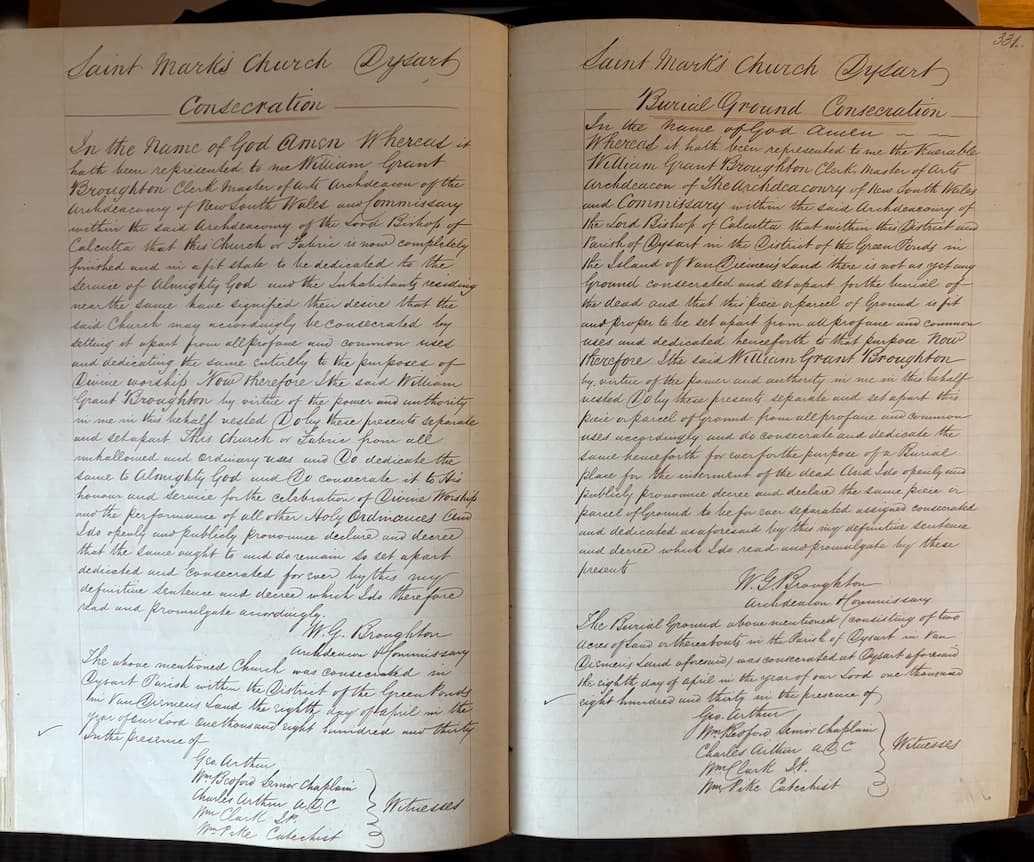 Saint Mark's Church Dysart
Consecration
In the Name of God Amen Whereas it
hath been represented to me William Grant
Broughton Clerk Master of Arts Archdeacon of the
Archdeaconry of New South Wales and Commissary
within the said Archdeaconry of the Lord Bishop of
Calcutta that this Church or Fabric is now completely
finished and in a fit state to be dedicated to the
service of Almighty God and the Inhabitants residing
near the same have signified their desire that the
said Church may accordingly be consecrated by
setting it apart from all profane and common uses
and dedicating the same entirely to the purposes of
Divine worship Now therefore I the said William
Grant Broughton by virtue of the power and authority
in me in this behalf vested Do by these presents separate
and set apart This Church or Fabric from all
unhallowed and ordinary uses and Do dedicate the
same to Almighty God and Do consecrate it to His
honour and service for the celebration of Divine Worship
and the performance of all other Holy Ordinances And
I do openly and publicly pronounce declare and decree
that the same ought to and do remain so set apart
dedicated and consecrated for ever by this my
definitive sentence and decree which I do therefore
read and promulgate accordingly.
W. G. Broughton
Archdeacon & Commissary
The above mentioned Church was consecrated in
Dysart Parish within the District of the Green Ponds
in Van Diemens Land the eighth day of April in the
year of our Lord One thousand eight hundred and thirty
In the presence of
Geo. Arthur
Wm Bedford Senior Chaplain
Charles Arthur A.D.C
Wm Clark J.P.
Wm Pike Catechist
Witnesses
331.
Saint Mark's Church Dysart
Burial Ground Consecration
In the Name of God Amen
Whereas it hath been represented to me the Venerable
William Grant Broughton Clerk, Master of Arts
Archdeacon of The Archdeaconry of New South Wales
and Commissary within the said Archdeaconry of
the Lord Bishop of Calcutta that within this District and
Parish of Dysart in the District of the Green Ponds in
the Island of Van Diemen's Land there is not as yet any
Ground consecrated and set apart for the burial of
the dead and that this piece or parcel of Ground is fit
and proper to be set apart from all profane and common
uses and dedicated henceforth to that purpose Now
therefore I the said William Grant Broughton
by virtue of the power and authority in me in this behalf
vested Do by these presents separate and set apart this
piece or parcel of Ground from all profane and common
uses accordingly and do consecrate and dedicate the
same henceforth for ever for the purpose of a Burial
place for the interment of the dead And I do openly and
publicly pronounce decree and declare the same piece or
parcel of Ground to be for ever separated assigned consecrated
and dedicated as aforesaid by this my definitive sentence
and decree which I do read and promulgate by these
presents
W. G. Broughton
Archdeacon & Commissary
The Burial Ground above mentioned (consisting of two
Acres of Land or thereabouts in the Parish of Dysart in Van
Diemens Land aforesaid) was consecrated at Dysart aforesaid
the eighth day of April in the year of our Lord one thousand
eight hundred and thirty in the presence of
Geo. Arthur
Wm Bedford Senior Chaplain
Charles Arthur A.D.C
Wm Clark J.P.
Wm Pike Catechist
Witnesses